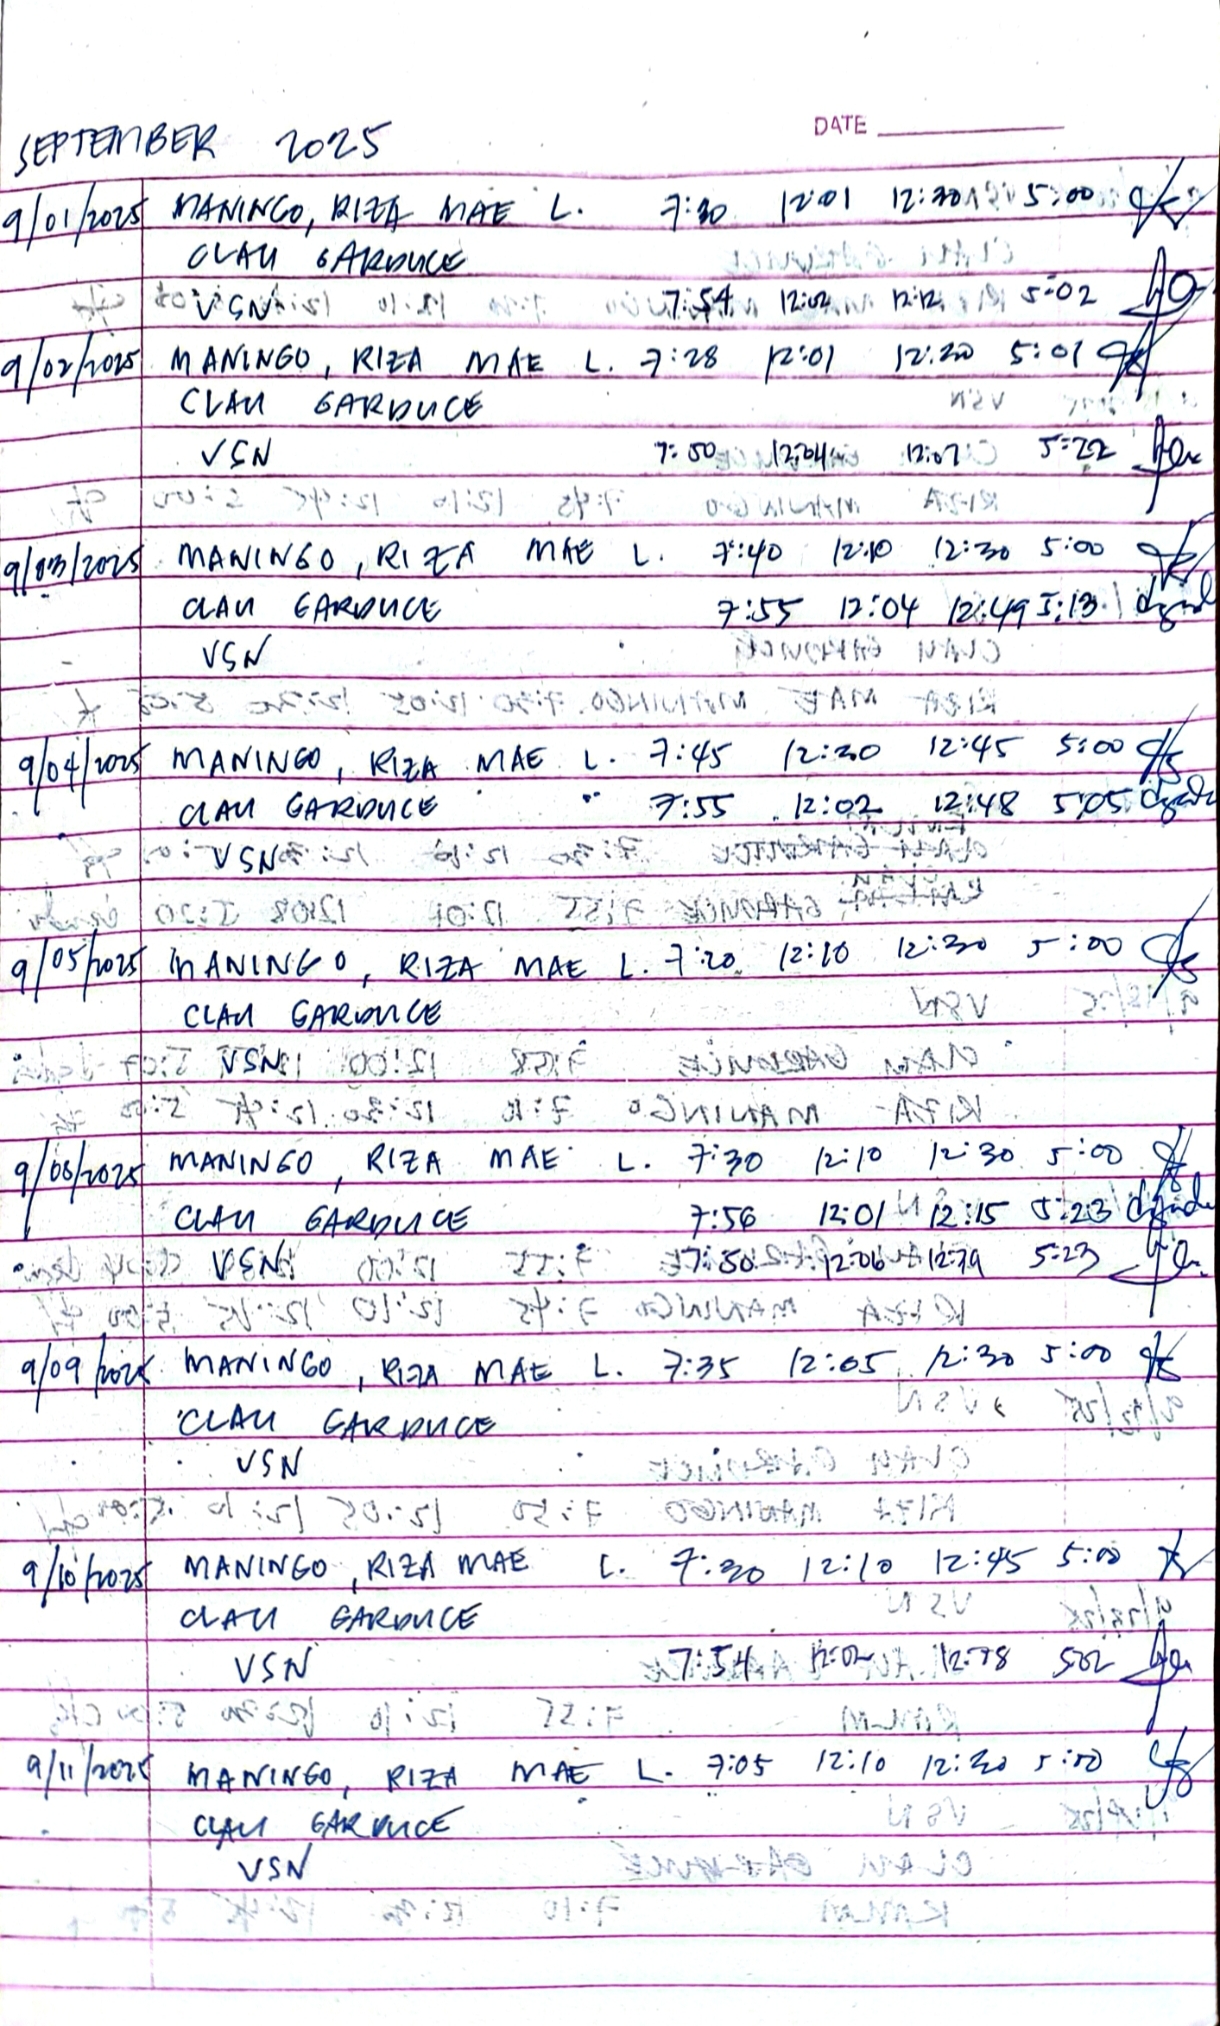 DATE
SEPTEMBER 2025
9/01/2025 MANINGO, RIZA MAE L. 7:30 12:01 12:30 5:00
CLAU GARDUCE
VSN 7:54 12:02 12:12 5:02
9/02/2025 MANINGO, RIZA MAE L. 7:28 12:01 12:20 5:01
CLAU GARDUCE
VSN 7:50 12:04 12:07 5:22
9/03/2025 MANINGO, RIZA MAE L. 7:40 12:10 12:30 5:00
CLAU GARDUCE 7:55 12:04 12:49 5:13
VSN
9/04/2025 MANINGO, RIZA MAE L. 7:45 12:30 12:45 5:00
CLAU GARDUCE 7:55 12:02 12:48 5:05
VSN
9/05/2025 MANINGO, RIZA MAE L. 7:20 12:10 12:30 5:00
CLAU GARDUCE
VSN
9/08/2025 MANINGO, RIZA MAE L. 7:30 12:10 12:30 5:00
CLAU GARDUCE 7:56 12:01 12:15 5:23
VSN 7:50 12:06 5:23
9/09/2025 MANINGO, RIZA MAE L. 7:35 12:05 12:30 5:00
CLAU GARDUCE
VSN
9/10/2025 MANINGO, RIZA MAE L. 7:30 12:10 12:45 5:00
CLAU GARDUCE
VSN 7:54 12:02 502
9/11/2025 MANINGO, RIZA MAE L. 7:05 12:10 12:30 5:00
CLAU GARDUCE
VSN